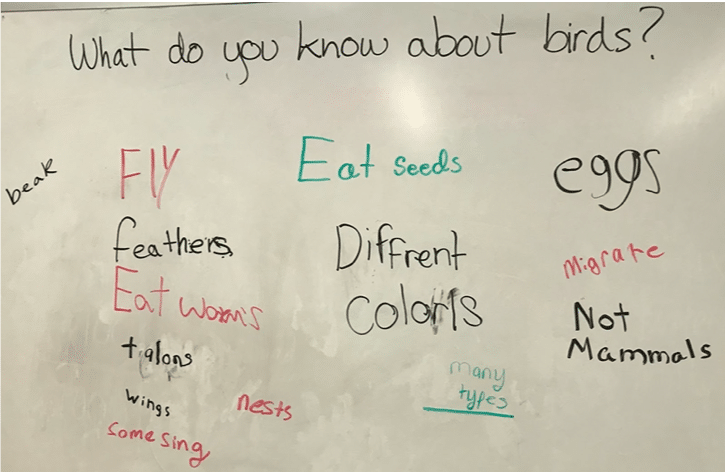 What do you know about birds?
beak
Fly
feathers
Eat worms
talons
wings
some sing
nests
Eat seeds
Diffrent
colorls
many
types
eggs
Migrate
Not
Mammals